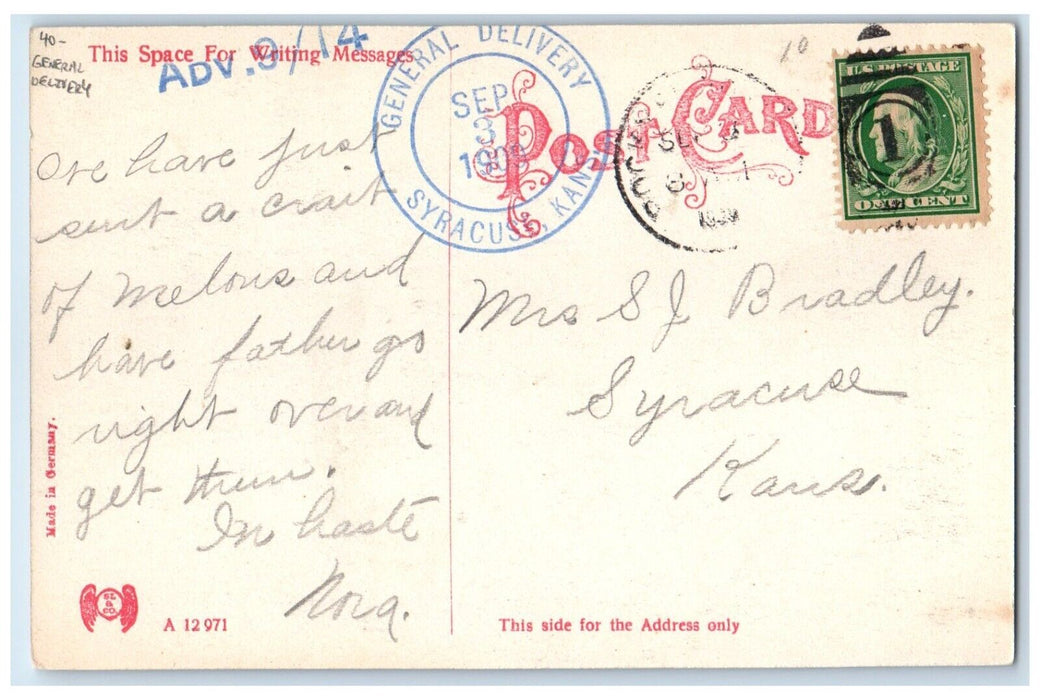 40-
GENERAL
DELIVERY
This Space For Writing Messages
ADV. 9/14
GENERAL DELIVERY
SEP
3
1909
SYRACUSE, KANS.
POST CARD
10
1
U.S. POSTAGE
ONE CENT
We have just
sent a crait
of melons and
have father go
right over and
get them.
In haste
Nora.
Mrs S J Bradley.
Syracuse
Kans.
Made in Germany.
SL
& CO.
A 12 971
This side for the Address only